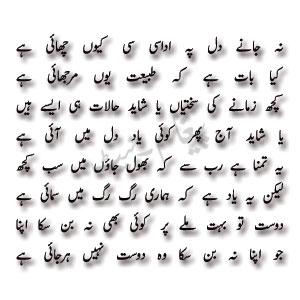 نہ جانے دل پہ اداسی سی کیوں چھائی ہے
کیا بات ہے کہ طبیعت یوں مرجھائی ہے
کچھ زمانے کی سختیاں یا شاید حالات ہی ایسے ہیں
یا شاید آج پھر کوئی یاد دل میں آئی ہے
یہ تمنا ہے رب سے کہ بھول جاؤں میں سب کچھ
لیکن یہ یاد ہے کہ ہماری رگ رگ میں سمائی ہے
دوست تو بہت ملے پر کوئی بھی نہ بن سکا اپنا
جو اپنا نہ بن سکا وہ دوست نہیں ہرجائی ہے